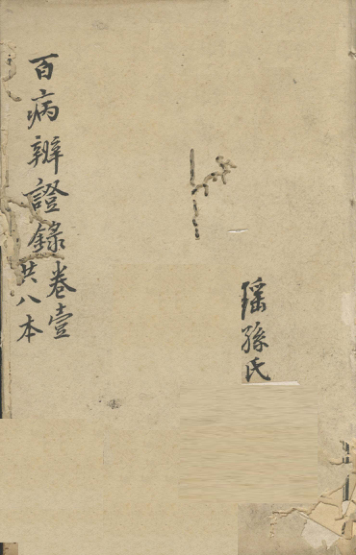 瑶孫氏
百病辦證錄卷壹
共八本